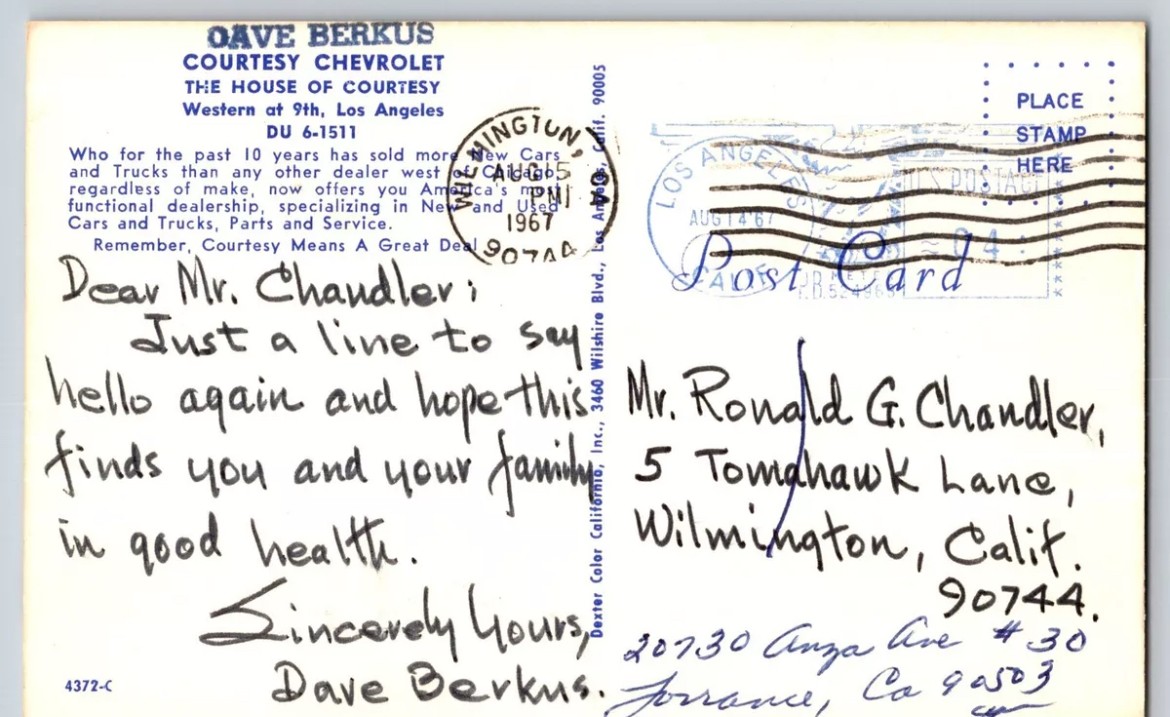 DAVE BERKUS
COURTESY CHEVROLET
THE HOUSE OF COURTESY
Western at 9th, Los Angeles
DU 6-1511
Who for the past 10 years has sold more New Cars
and Trucks than any other dealer west of Chicago,
regardless of make, now offers you America's most
functional dealership, specializing in New and Used
Cars and Trucks, Parts and Service.
Remember, Courtesy Means A Great Deal
Dear Mr. Chandler:
Just a line to say
hello again and hope this
finds you and your family
in good health.
Sincerely Yours,
Dave Berkus.
4372-C
Dexter Color California, Inc., 3460 Wilshire Blvd., Los Angeles, Calif. 90005
WILMINGTON,
AUG 15
PM
1967
90744
LOS ANGELES
AUG 14 '67
CALIF
U.S. POSTAGE
04
PLACE
STAMP
HERE
Post Card
Mr. Ronald G. Chandler,
5 Tomahawk Lane,
Wilmington, Calif.
90744.
20730 Anza Ave #30
Torrance, Ca 90503